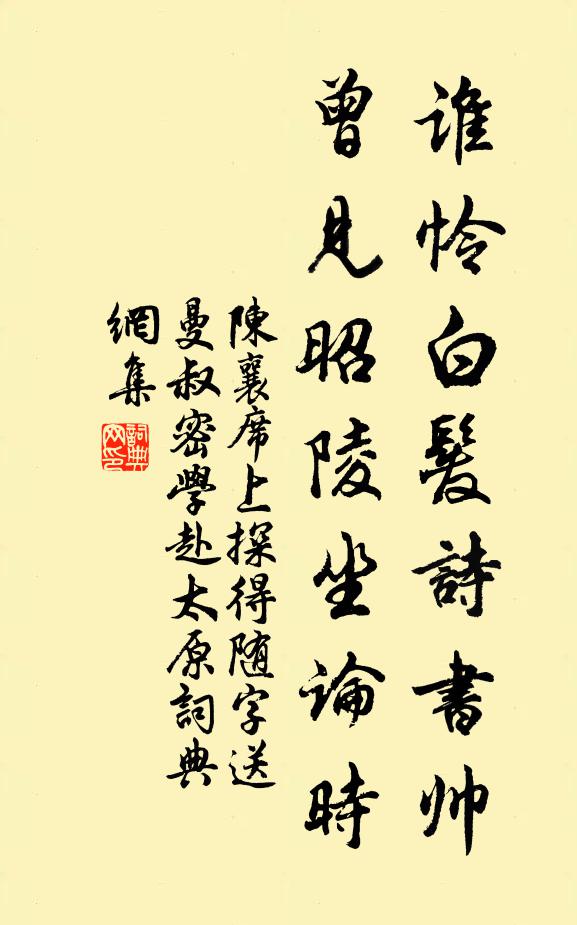 誰怜白髮詩書帅
曾見昭陵坐論時
陳襄席上探得随字送
曼叔密學赴太原詞典
網集
詞典网印